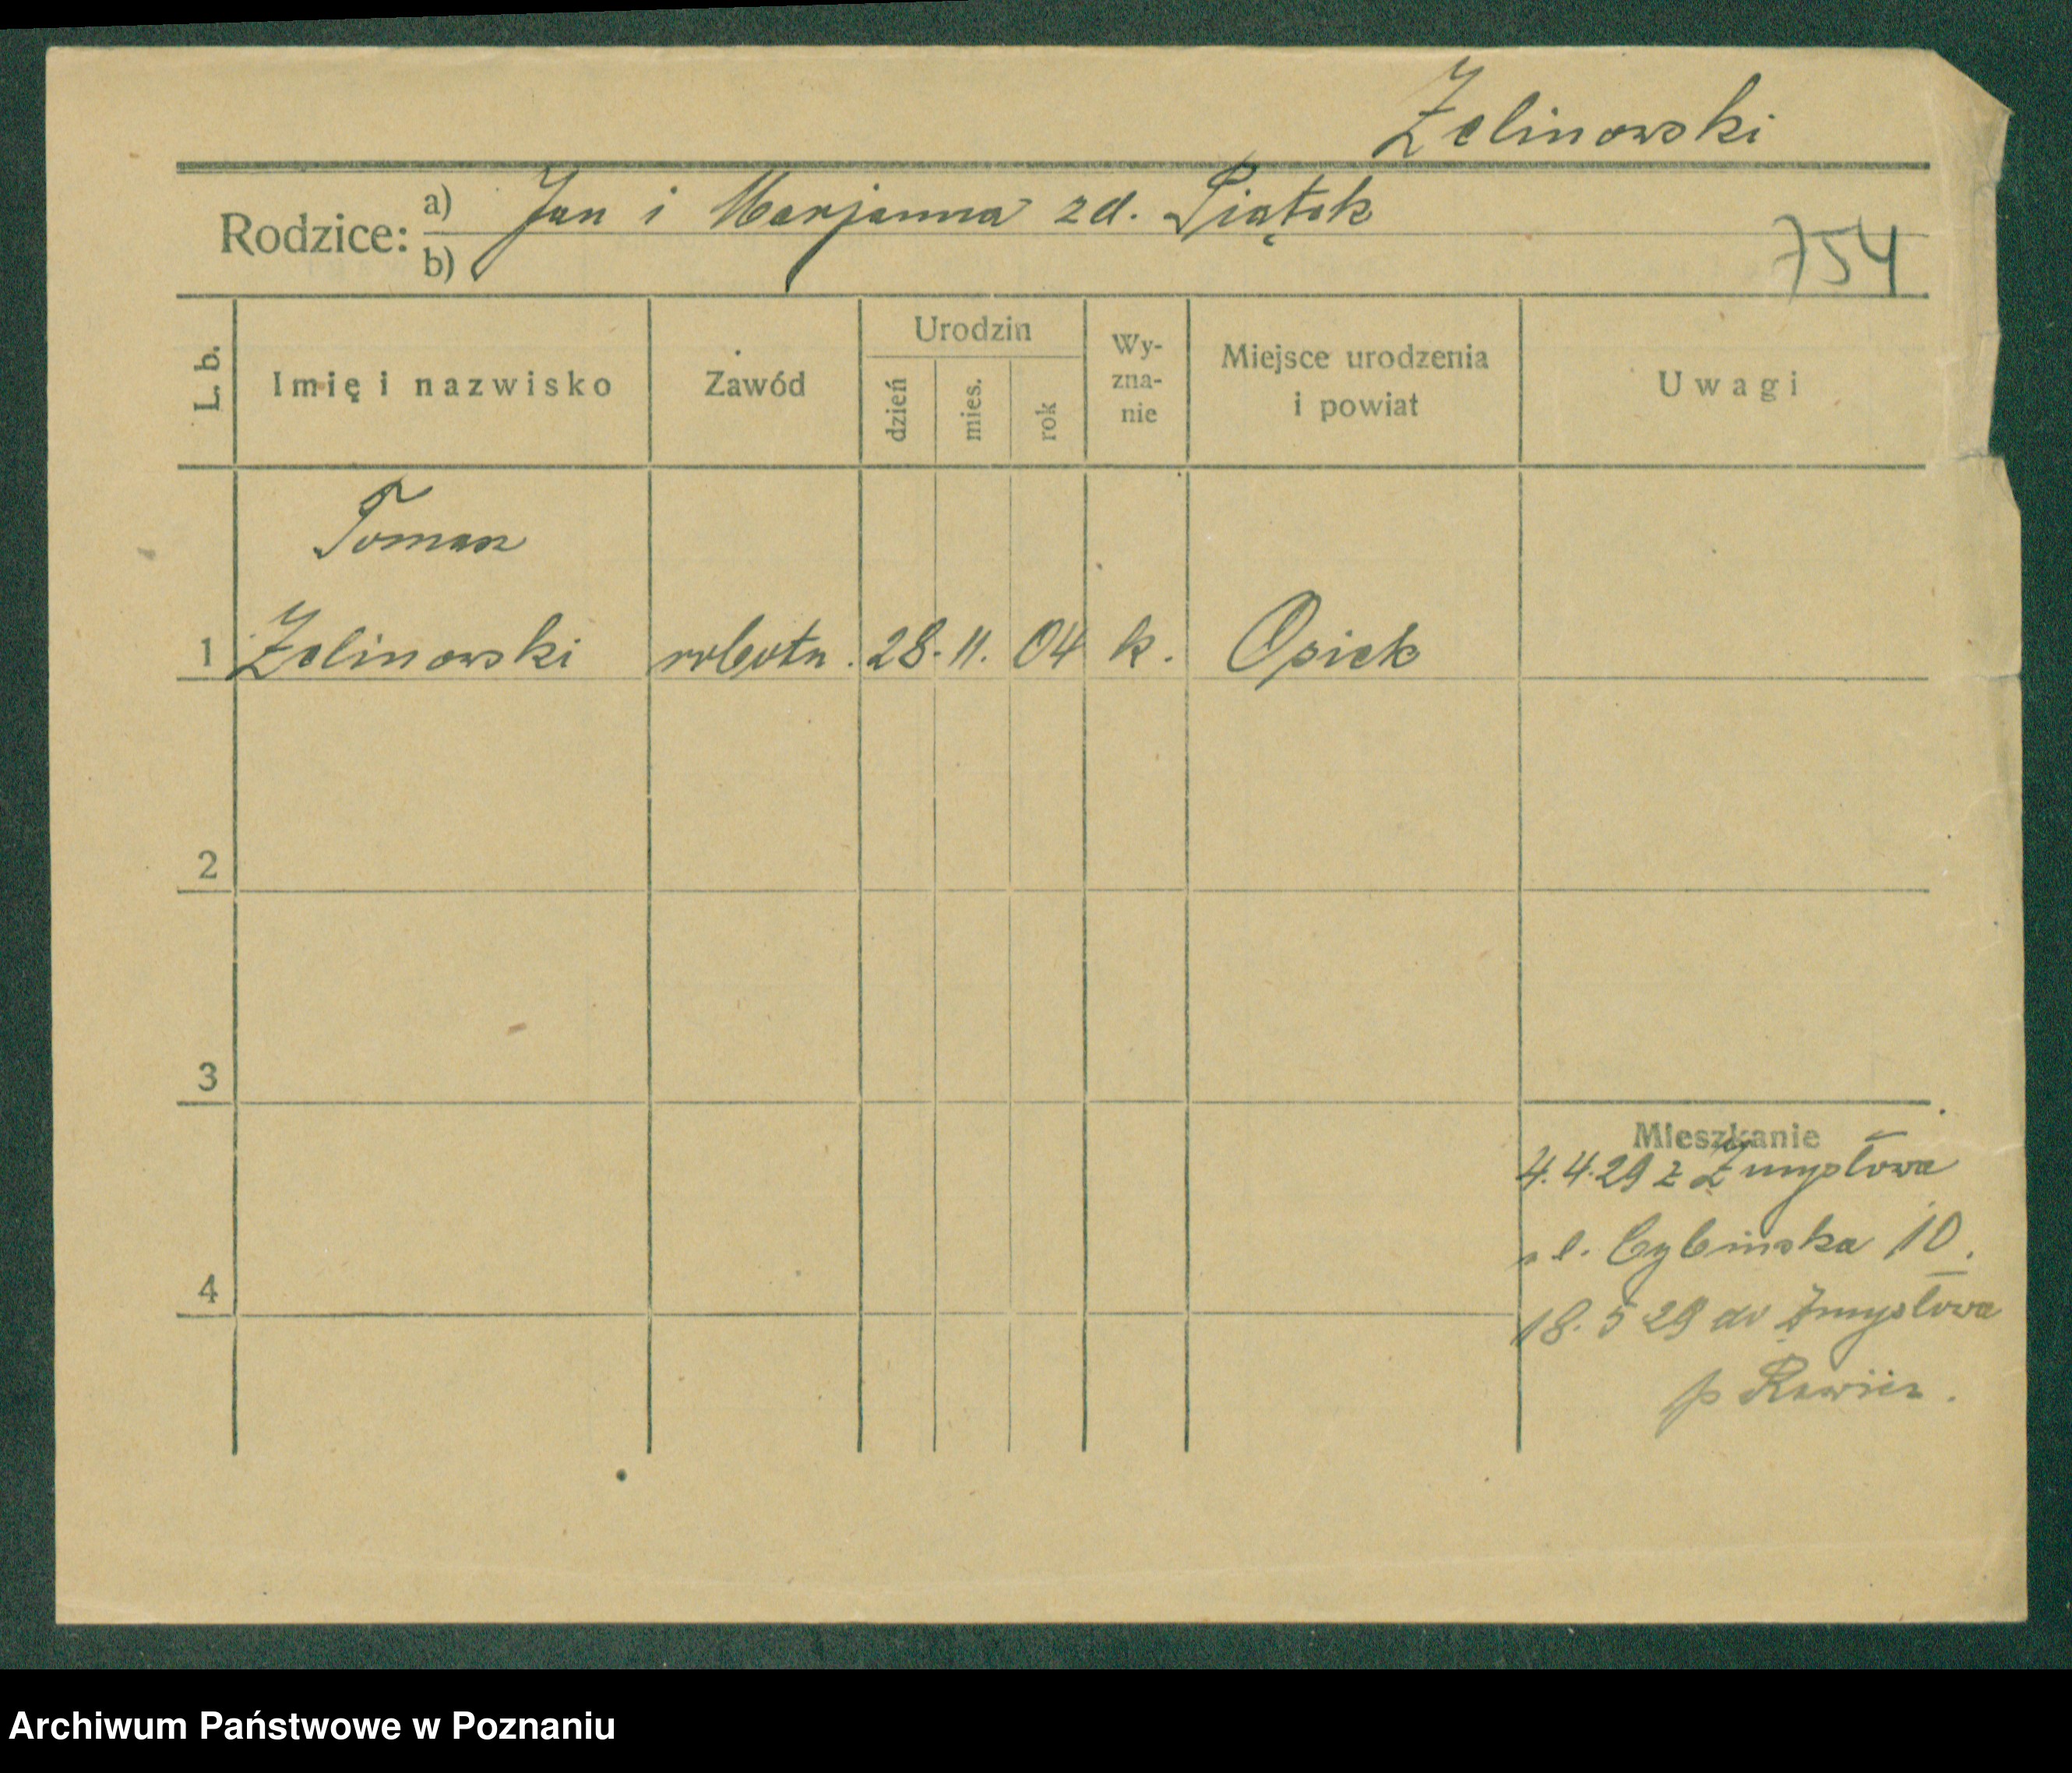 Zelinowski
Rodzice: a) Jan i Marjanna zd. Piątek
b)
754
L. b.
Imię i nazwisko
Zawód
Urodzin
dzień
mies.
rok
Wy-
zna-
nie
Miejsce urodzenia
i powiat
Uwagi
Tomasz
1 Zelinowski robotn. 28. 11. 04 k. Osiek
2
3
4
Mieszkanie
4.4.29 z Zmysłowa
ul. Cybińska 10.
18. 5 29 do Zmysłowa
p Rawicz.
Archiwum Państwowe w Poznaniu